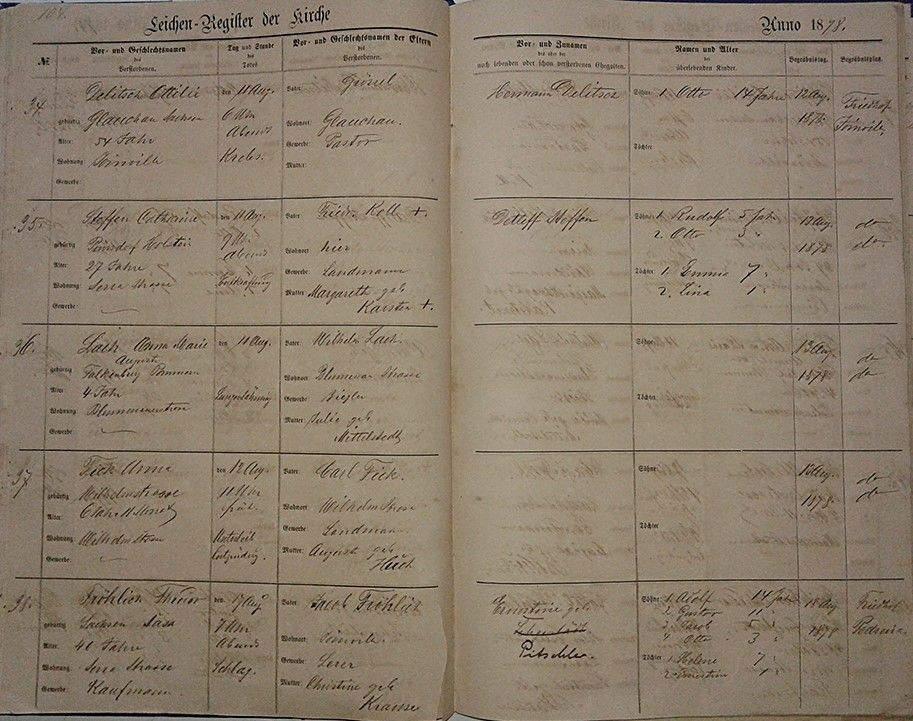 Leichen-Register der Kirche
Anno 1878.
№
Vor- und Geschlechtsnamen
des
Verstorbenen.
Tag und Stunde
des
Todes
Vor- und Geschlechtsnamen der Eltern
des
Verstorbenen.
Vor- und Zunamen
des oder der
noch lebenden oder schon verstorbenen Ehegatten.
Namen und Alter
der
überlebenden Kinder.
Begräbnißtag.
Begräbnißplatz.
34
Delitsch Ottilie
den 11 Aug.
Vater:
Hermann Delitsch
Söhne: 1. Otto 14 Jahre
12 Aug.
Friedhof
gebürtig Glauchau Sachsen
6 Uhr
Wohnort: Glauchau.
1878.
Joinville
Alter: 54 Jahr
Abends
Gewerbe: Pastor
Wohnung Joinville
Krebs.
Mutter:
Töchter
Gewerbe:
35.
Steffen Catharine
den 11 Aug.
Vater Friedr. Koll +.
Detleff Steffen
Söhne: 1. Rudolf 5 Jahr
2. Otto 3 "
13 Aug.
1878
do
do
gebürtig Holstein
9 Uhr
Abends
Wohnort: hier
Alter: 27 Jahre
Gewerbe: Landmann
Töchter 1. Emma 7 "
2. Lina 1 "
Wohnung: Serra Strasse
Mutter: Margareth geb.
Karsten +.
Gewerbe:
36.
Lach Anna Marie
Auguste
den 10 Aug.
Vater: Wilhelm Lach.
Söhne:
13 Aug.
1878
do
do
gebürtig Falkenburg Pommern
Wohnort: Blumenau Strasse
Alter 4 Jahr
Lungenlähmung
Gewerbe: Ziegler
Töchter:
Wohnung
Mutter: Julia geb
Mittelstedt
Gewerbe:
37
Fick Anna
den 12 Aug.
Vater: Carl Fick.
Söhne:
13 Aug.
1878.
do
do
gebürtig Wilhelmstrasse
Wohnort Wilhelm Strasse
Alter:
Gewerbe: Landmann
Töchter
Wohnung: Wilhelmstrasse
Unterleib
Mutter: August geb
Gewerbe:
38.
Fröhlich
den 17 Aug
Vater: Jacob Fröhlich
Ernestine geb
Pitschler.
Söhne: 1. Adolf 14 Jahr
2. Gustav 11 "
3. Jacob 5 "
4. Otto 3 "
18 Aug
1878
Friedhof
Pedreira.
gebürtig Sachsen
7 Uhr
Abends
Wohnort: Joinville.
Alter: 40 Jahre
Gewerbe:
Töchter 1. Helene 7 "
2. Ernestine 1 "
Wohnung: Serra Strasse
Schlag.
Mutter: Christine geb
Krause
Gewerbe: Kaufmann.